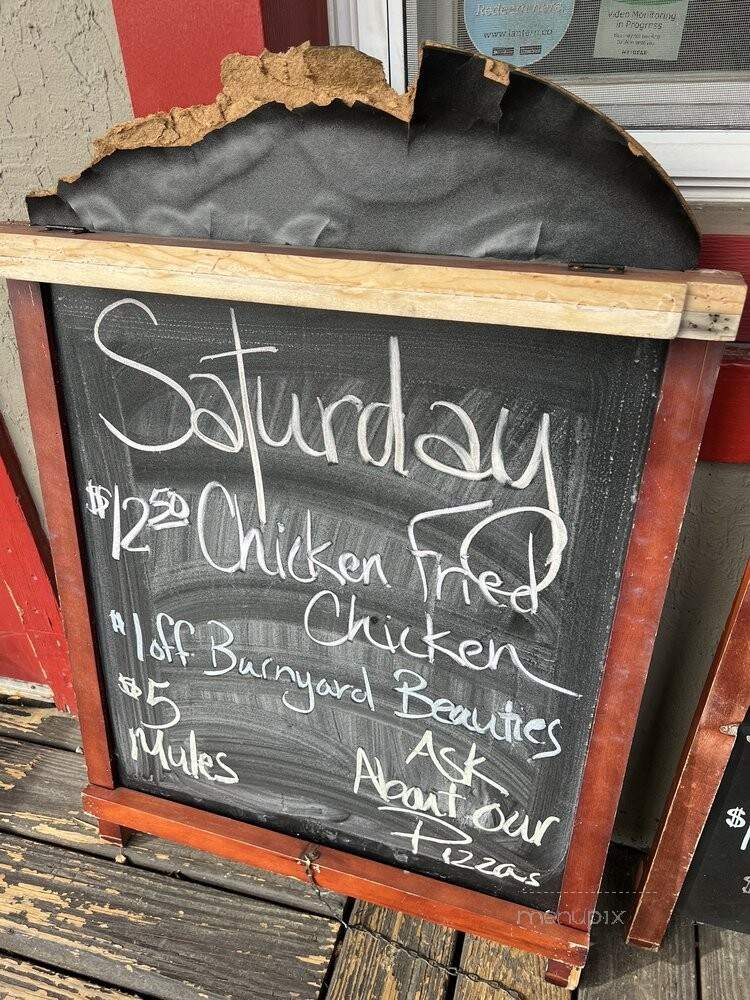 www.lantern.co
Video Monitoring
in Progress
Saturday
$12.50 Chicken Fried
Chicken
$1 off Barnyard Beauties
$5
Mules
Ask
About our
Pizzas
$
menupix